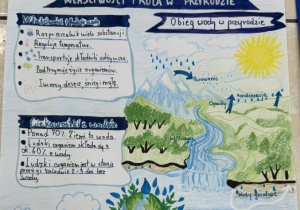 WŁAŚCIWOŚCI I ROLA W PRZYRODZIE
Obieg wody w przyrodzie
Rozpuszczalnik wielu substancji
Reguluje temperaturę.
Transportuje składniki odżywcze.
Podtrzymuje życie organizmów.
Tworzy deszcz, śnieg i mgłę.
Parowanie
Kondensacja
Opady
o wodzie
Ponad 70% Ziemi to woda
Ludzki organizm składa się z
ok. 60% z wody.
Ludzki organizm jest w stanie
przeżyć zaledwie 2-3 dni bez
wody.
Wody